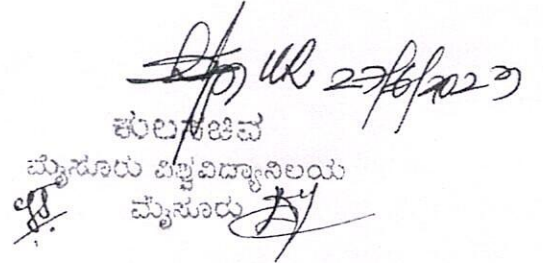 27/6/2023
ಕುಲಸಚಿವ
ಮೈಸೂರು ವಿಶ್ವವಿದ್ಯಾನಿಲಯ
ಮೈಸೂರು